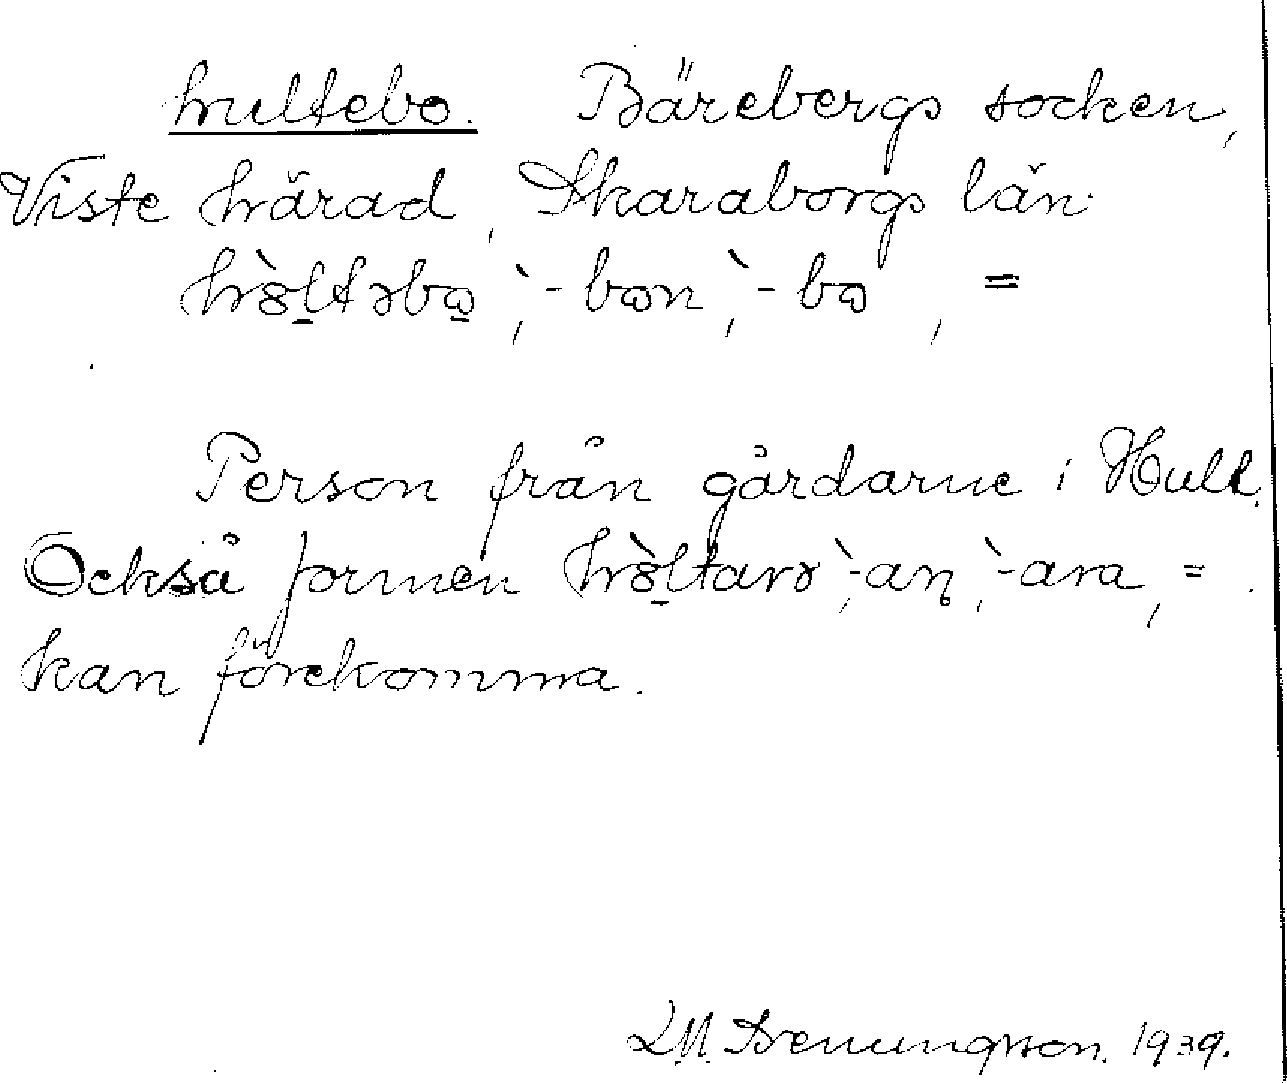 hultebo. Bärebergs socken,
Viste härad, Skaraborgs län.
-bon, -bo, =
Person från gårdarne i Hult.
Också formen -an, -ara, =.
kan förekomma.
1939.